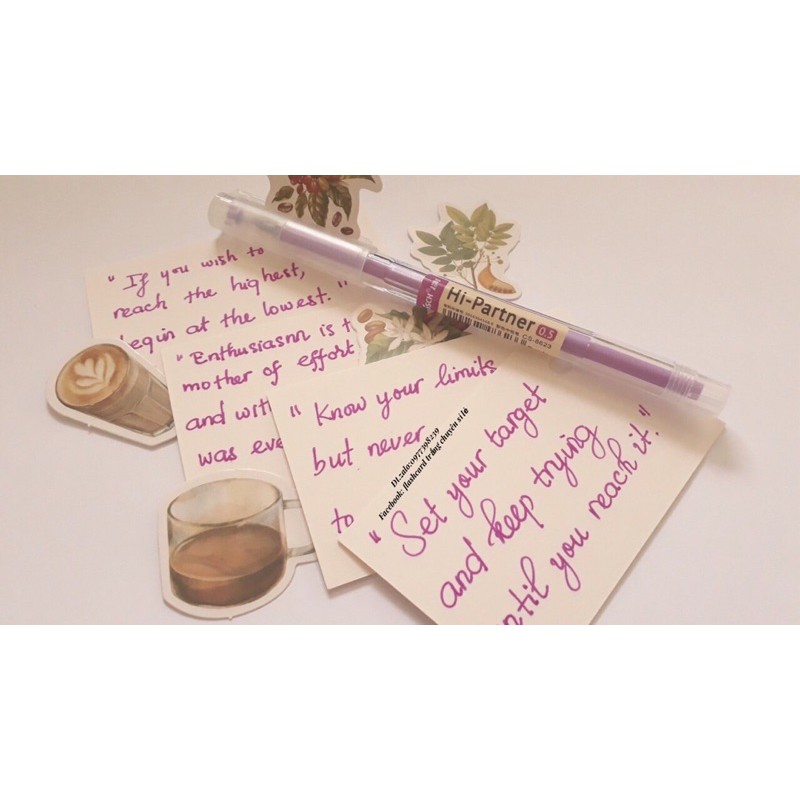 "If you wish to
reach the highest,
begin at the lowest."
"Enthusiasm is t
mother of effort
and with
was eve
"Know your limits
but never
to
"Set your target
and keep trying
until you reach it."
Hi-Partner 0.5
CS-8623
Facebook: flashcard trắng chuyên sỉ lẻ